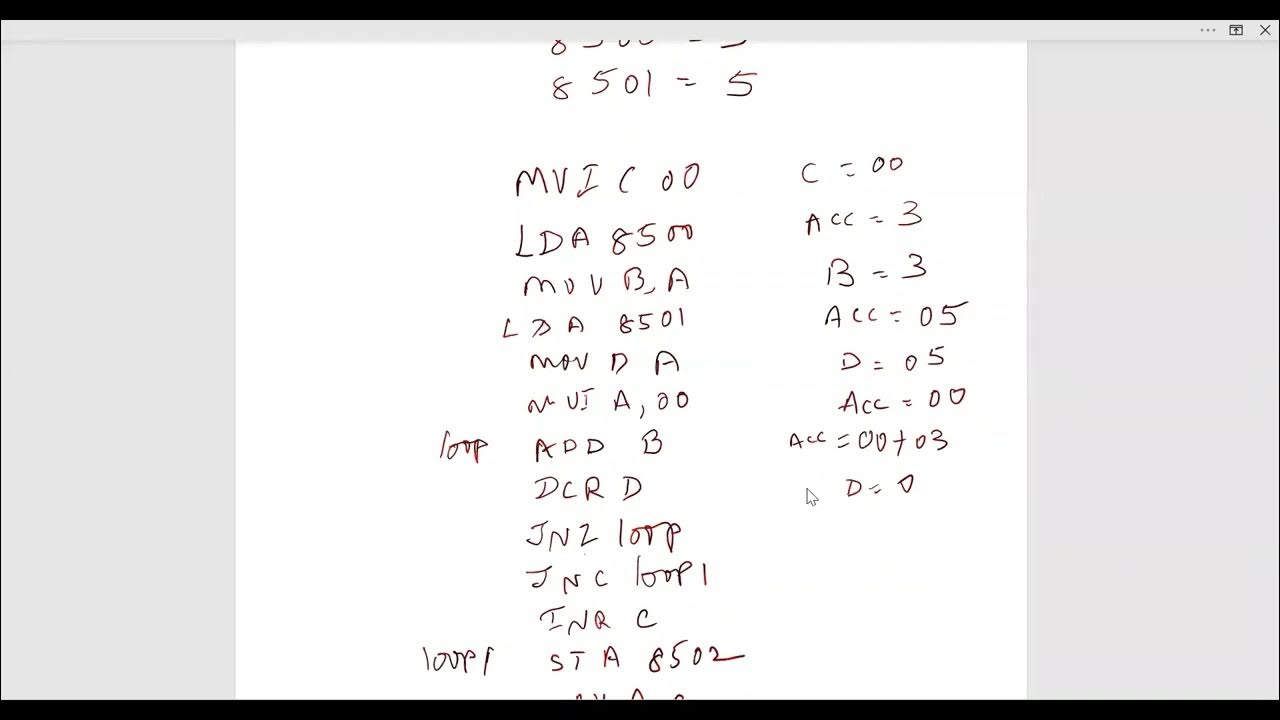 8501 = 5
MVI C 00 C = 00
LDA 8500 ACC = 3
MOV B, A B = 3
LDA 8501 ACC = 05
MOV D A D = 05
MVI A, 00 ACC = 00
loop ADD B ACC = 00+03
DCR D D = 0
JNZ loop
JNC loop1
INR C
loop1 STA 8502